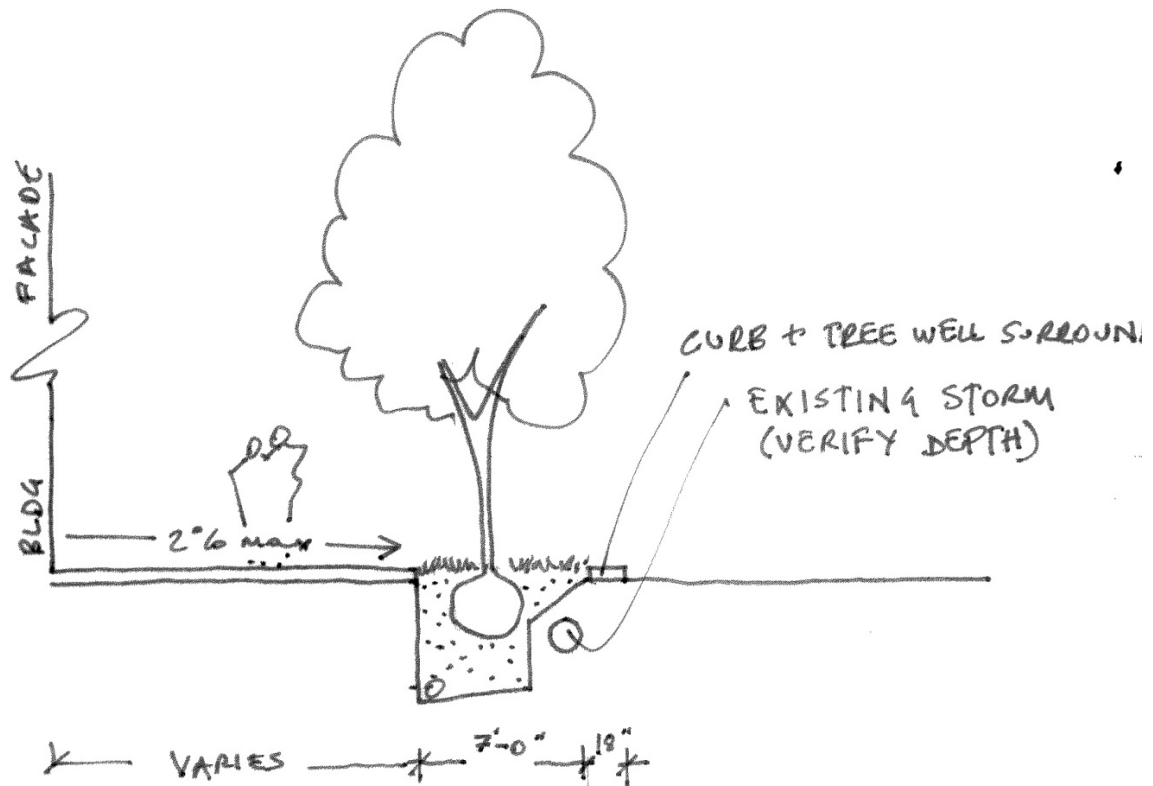 FACADE
BLDG
CURB + TREE WELL SURROUN
EXISTING STORM
(VERIFY DEPTH)
2% MAX
VARIES
7'-0"
18"